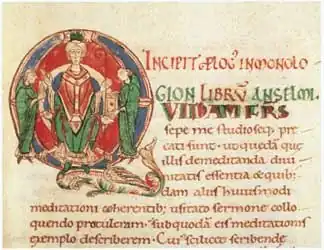 INCIPIT PLOG' IN MONOLO
GION LIBRŪ ANSELMI.
VIDAM FRS
sepe me studioseq; pre
cati sunt. ut quedā que
illis de meditanda divi
nitatis essentia & quib;
dam aliis huiusmodi
meditationi coherentib; usitato sermone collo
quendo protuleram. sub quodā eis meditationis
exemplo describerem. Cui scilicet scribende